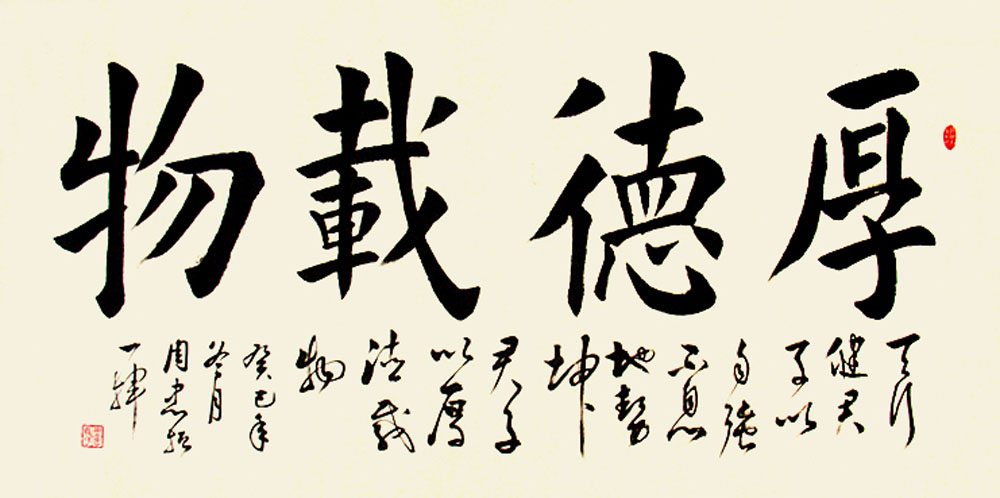 厚德載物
天行
健君
子以
自强
不息
地勢
坤
君子
以厚
德载
物
癸巳年
冬月
周忠
一揮